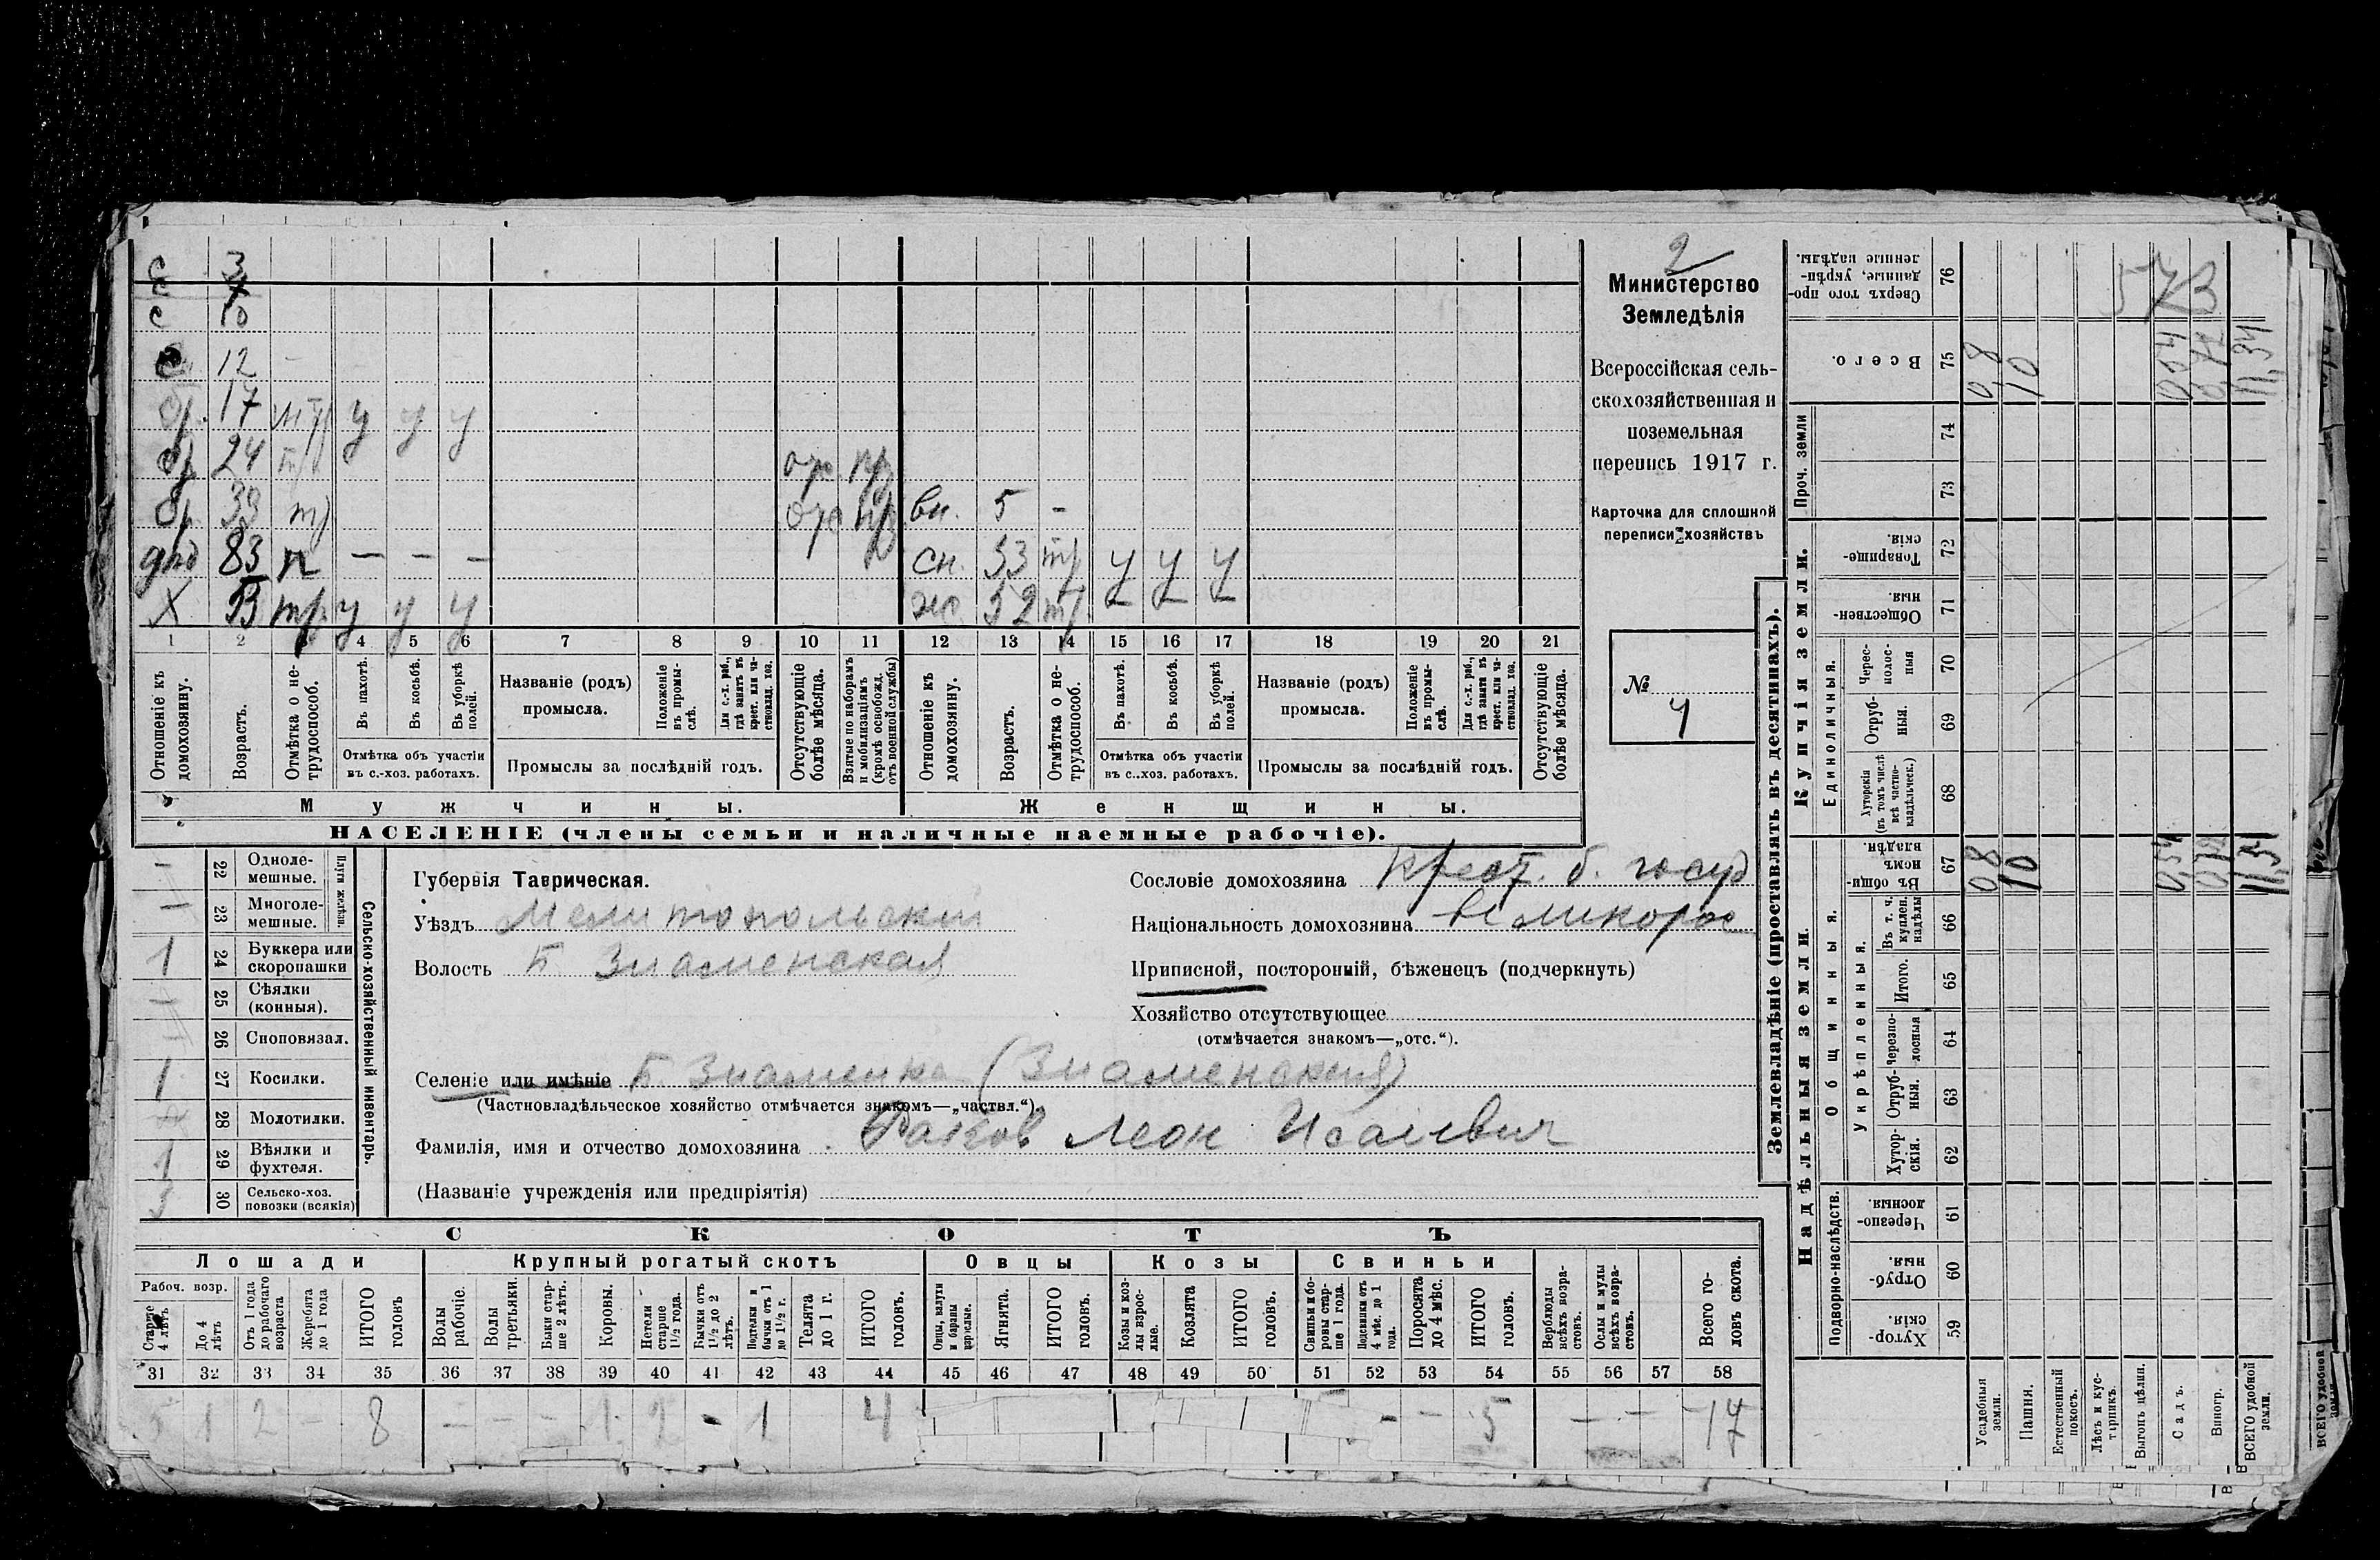 с 3
с 10
с 12 -
бр. 17 тр у у у
бр 24 тр отс пр
бр 33 тр отс пр вн. 5 -
дяд 83 п — — — сн. 33 тр у у у
Х тр у у у ж. 32 тр.
1 2 4 5 6 7 8 9 10 11 12 13 14 15 16 17 18 19 20 21
Отношеніе къ домохозяину.
Возрастъ.
Отмѣтка о не-трудоспособ.
Въ пахотѣ.
Въ косьбѣ.
Въ уборкѣ полей.
Отмѣтка объ участіи
въ с.-хоз. работахъ.
Названіе (родъ)
промысла.
Положеніе въ промы-слѣ.
Для с.-х. раб., гдѣ занятъ въ крест. или ча-стновлад. хоз.
Промыслы за послѣдній годъ.
Отсутствующіе болѣе мѣсяца.
Взятые по наборамъ и мобилизаціямъ (кромѣ освобожд. отъ военной службы)
Отношеніе къ домохозяину.
Возрастъ.
Отмѣтка о не-трудоспособ.
Въ пахотѣ.
Въ косьбѣ.
Въ уборкѣ полей.
Отмѣтка объ участіи
въ с..хоз. работахъ.
Названіе (родъ)
промысла.
Положеніе въ промы-слѣ.
Для с.-х. раб., гдѣ занята въ крест. или ча-стновлад. хоз.
Промыслы за послѣдній годъ.
Отсутствующіе болѣе мѣсяца.
Мужчины.
Женщины.
НАСЕЛЕНІЕ (члены семьи и наличные наемные рабочіе).
2
Министерство
Земледѣлія
Всероссійская сель-
скохозяйственная и
поземельная
перепись 1917 г.
Карточка для сплошной
переписи хозяйствъ
№
4
Плуги желѣзн.
— 22 Одноле-мешные.
— 23 Многоле-мешные.
1 24 Буккера или скоропашки
— 25 Сѣялки (конныя).
— 26 Сноповязал.
1 27 Косилки.
28 Молотилки.
1 29 Вѣялки и фухтеля.
3 30 Сельско-хоз. повозки (всякія)
Сельско-хозяйственный инвентарь.
Губернія Таврическая.
Уѣздъ Мелитопольский
Волость Б Знаменская
Сословіе домохозяина Крест. б. госуд
Національность домохозяина великорос
Приписной, посторонній, бѣженецъ (подчеркнуть)
Хозяйство отсутствующее
(отмѣчается знакомъ—„отс.“).
Селеніе или имѣніе Б. Знаменка (Знаменская)
(Частновладѣльческое хозяйство отмѣчается знакомъ—„частвл.“).
Фамилія, имя и отчество домохозяина Раков Леон Исаевич
(Названіе учрежденія или предпріятія)
СКОТЪ
Лошади Крупный рогатый скотъ Овцы Козы Свиньи
Рабоч. возр.
Старше 4 лѣтъ
До 4 лѣтъ
Отъ 1 года до рабочаго возраста
Жеребята до 1 года
ИТОГО головъ
Волы рабочіе.
Волы третьяки.
Быки стар-ше 2 лѣтъ.
Коровы.
Нетели старше 1½ года.
Бычки отъ 1½ до 2 лѣтъ.
Подтелки и бычки отъ 1 до 1½ г.
Телята до 1 г.
ИТОГО головъ.
Овцы, валухи и бараны взрослые.
Ягнята.
ИТОГО головъ.
Козы и коз-лы взрос-лые.
Козлята
ИТОГО головъ.
Свиньи и бо-ровы стар-ше 1 года.
Подсвинки отъ 4 мѣс. до 1 года.
Поросята до 4 мѣс.
ИТОГО головъ.
Верблюды всѣхъ возра-стовъ.
Ослы и мулы всѣхъ возра-стовъ.
Всего го-ловъ скота.
31 32 33 34 35 36 37 38 39 40 41 42 43 44 45 46 47 48 49 50 51 52 53 54 55 56 57 58
5 1 2 8 — — — 1 2 - 1 4 - — 5 — — 17
Землевладѣніе (проставлять въ десятинахъ).
Купчія земли.
Надѣльныя земли.
Сверхъ того про-данные, укрѣп-ленные надѣлы. 76
573
Всего. 75 0,8 10 11,34
Проч. земли 74 73
Товарище-скія. 72
Обществен-ныя. 71
Единоличныя.
Черес-полос-ныя 70
Отруб-ныя. 69
Хуторскія (въ томъ числѣ всѣ частно-владѣльческ.) 68
Общинныя.
Въ общин-номъ владѣн. 67 0,8 10 0,54 11,34
Укрѣпленныя.
Въ т. ч. куплен. надѣлы 66
Итого. 65
Черезпо-лосныя 64
Отруб-ныя. 63
Хутор-скія. 62
Подворно-наслѣдств.
Черезпо-лосныя. 61
Отруб-ныя. 60
Хутор-скія. 59
Усадебныя земли.
Пашня.
Естественный покосъ.
Лѣсъ и кус-тарникъ.
Выгонъ цѣлин.
Садъ.
Виногр.
ВСЕГО удобной земли.
ВСЕГО удобной земли